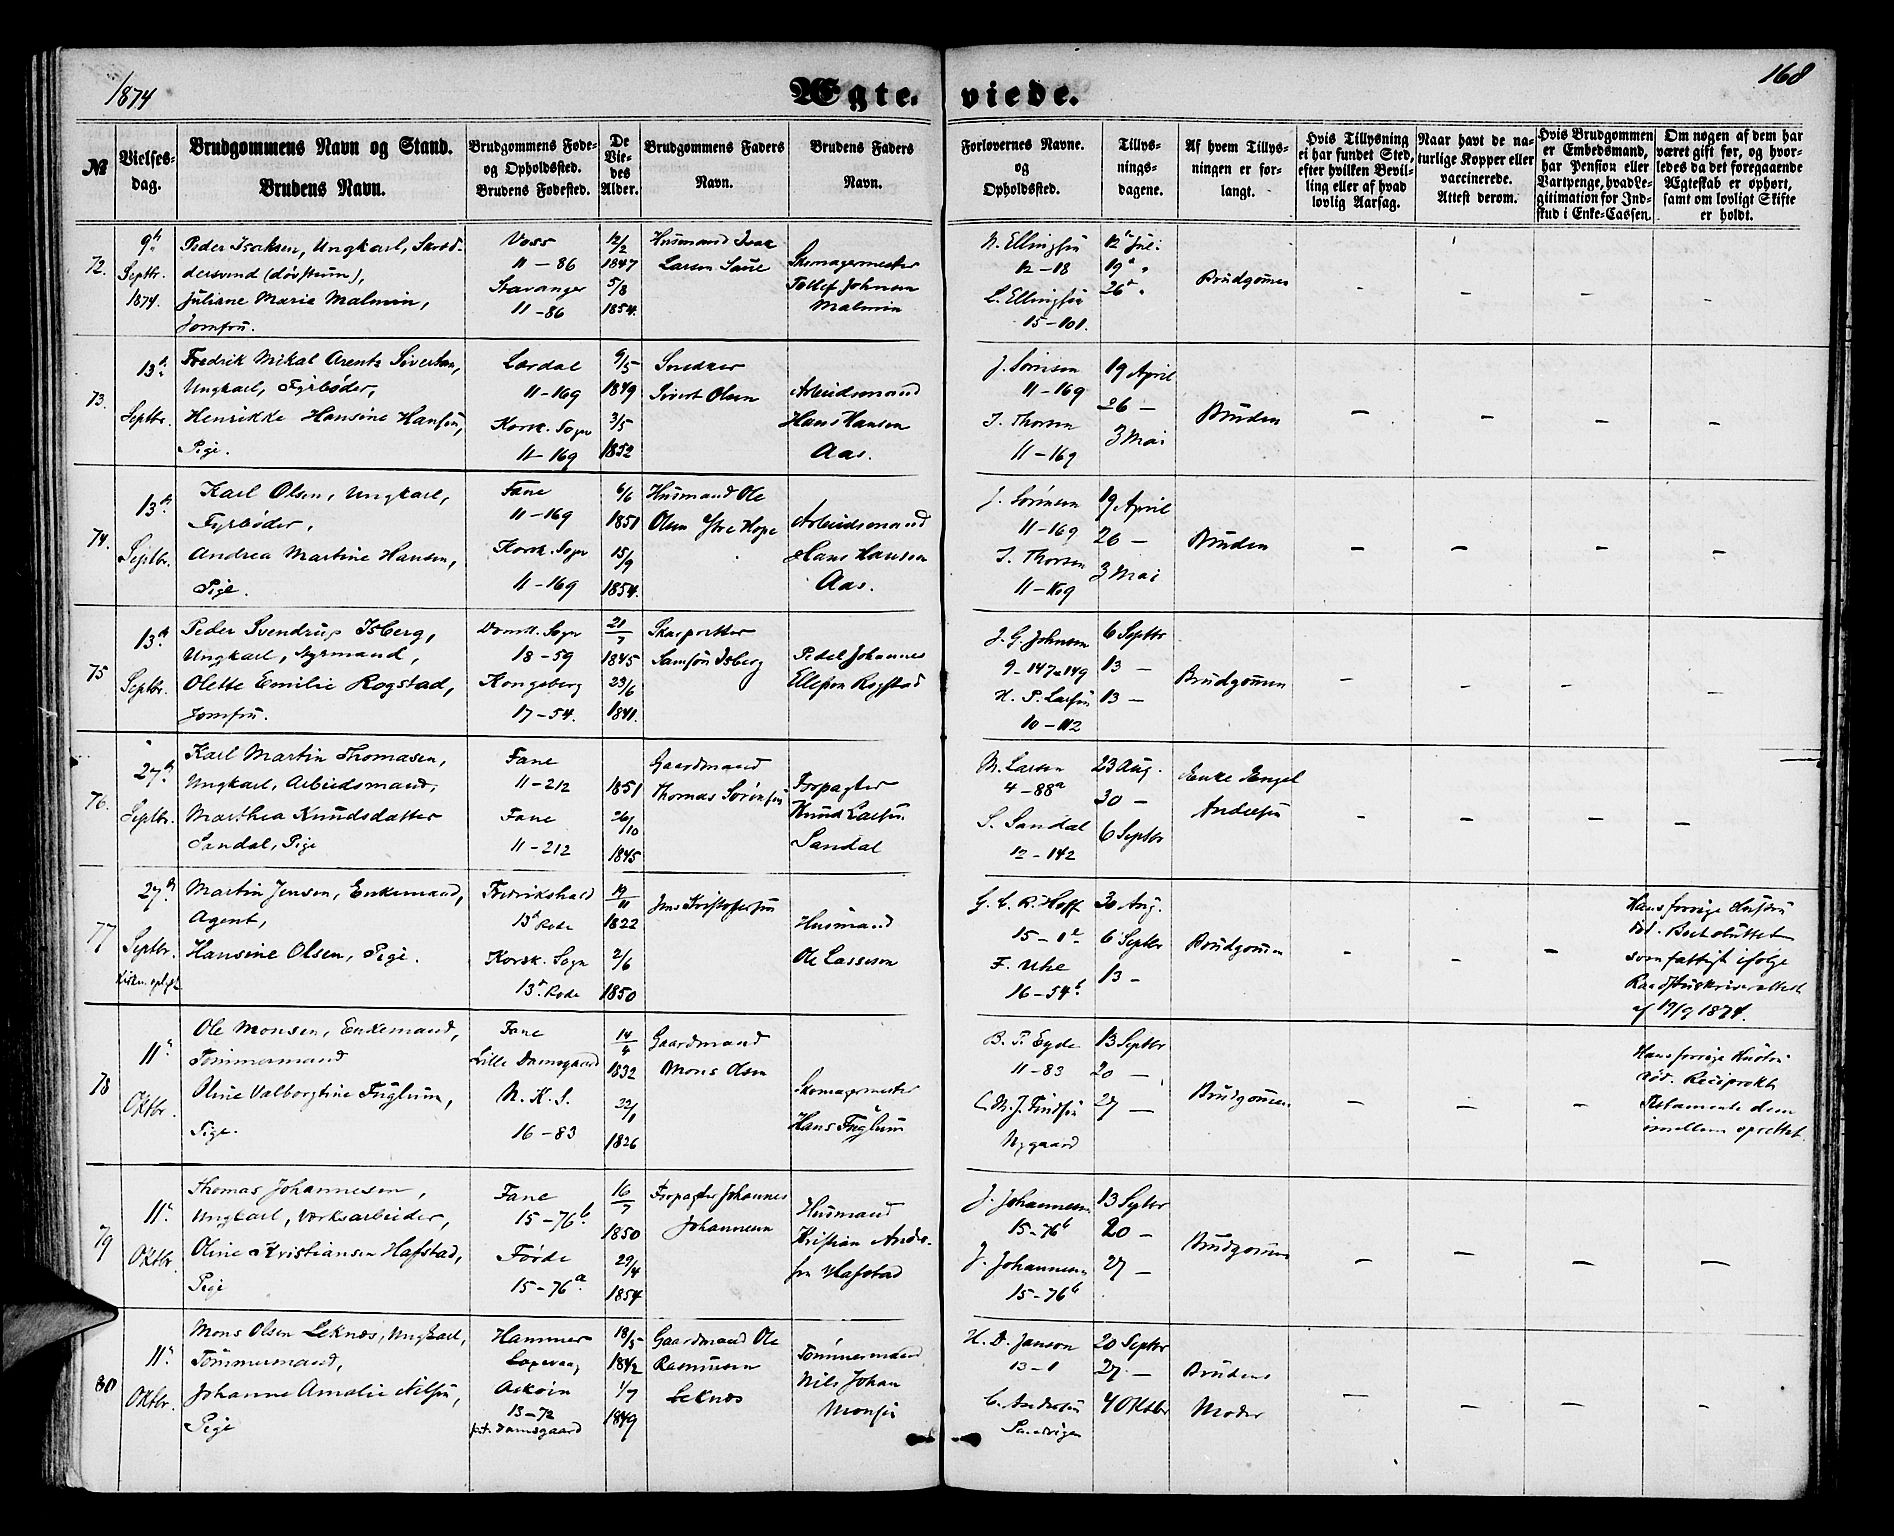 1874
Ægte. viede.
168
№
Vielses-
dag.
Brudgommens Navn og Stand.
Brudens Navn.
Brudgommens Føde-
og Opholdssted.
Brudens Fødested.
De
Vie-
des
Alder.
Brudgommens Faders
Navn.
Brudens Faders
Navn.
Forlovernes Navne.
og
Opholdssted.
Tillys-
nings-
dagene.
Af hvem Tillys-
ningen er for-
langt.
Hvis Tillysning
ei har fundet Sted,
efter hvilken Bevil-
ling eller af hvad
lovlig Aarsag.
Naar havt de na-
turlige Kopper eller
vaccinerede.
Attest derom.
Hvis Brudgommen
er Embedsmand,
har Pension eller
Vartpenge, hvad Le-
gitimation for Ind-
skud i Enke-Cassen.
Om nogen af dem har
været gift før, og hvor-
ledes da det foregaaende
Ægteskab er ophørt,
samt om lovligt Skifte
er holdt.
72.
9de
Septbr.
1874.
Peder Isaksen, Ungkarl,
(døvstum),
Juliane Marie Malmin,
Jomfru.
Voss
11-86
Stavanger
11-86
12/2
1847
5/8
1854.
Husmand Isak
Larsen Saue
Skomagermester
Tollef Johnsen
Malmin
N. Ellingsen
12-18
L. Ellingsen
15-101.
12te Juli
19de "
26de "
Brudgommen
– – – –
73.
13de
Septbr.
Fredrik Mikal Arentz Sivertsen,
Ungkarl, Fyrbøder,
Henrikke Hansine Hansen,
Pige.
Lærdal
11-169
Korsk. Sogn
11-169
9/5
1849
3/5
1852
Smedker
Sivert Olsen
Arbeidsmand
Hans Hansen
Aas.
J. Sörensen
11-169
T. Thorsen
11-169
19 April
26 –
3 Mai
Bruden
– – – –
74.
13de
Septbr.
Karl Olsen, Ungkarl,
Fyrbøder,
Andrea Martine Hansen,
Pige.
Fane
11-169
Korsk. Sogn
11-169
6/6
1851
15/9
1854.
Husmand Ole
Olsen Øvre Hope
Arbeidsmand
Hans Hansen
Aas.
J. Sörensen
11-169
T. Thorsen
11-169
19 April
26 –
3 Mai
Bruden
– – – –
75
13de
Septbr.
Peder Svendrup Isberg,
Ungkarl, Styrmand,
Olette Emilie Rogstad,
Jomfru.
Domk. Sogn
18-59
Kongsberg
17-54.
21/7
1845
23/6
1841.
Samson Isberg
Pedel Johannes
Ellefsen Rogstad
J. G. Johnsen
9-147-149
H. P. Larsen
10-112
6 Septbr
13 –
13 –
Brudgommen
– – – –
76.
27de
Septbr.
Karl Martin Thomasen,
Ungkarl, Arbeidsmand,
Marthea Knudsdatter
Sandal, Pige
Fane
11-212
Fane
11-212
1851
26/10
1845
Gaardmand
Thomas Sörensen
Forpagter
Knud Larsen
Sandal
M. Larsen
4-88a
S. Sandal
12-142
23 Aug.
30 –
6 Septbr
Enke Engel
Andersen
– – – –
77
27de
Septbr.
Martin Jensen, Enkemand,
Agent,
Hansine Olsen, Pige.
Fredrikshald
13de Rode
Korsk. Sogn
13de Rode
19/11
1822
2/6
1850
Jens Kristoffersen
Husmand
Ole Lassesen
G. L. R. Hoff
15-1e
F. Uhe
16-54b.
30 Aug.
6 Septbr
13 –
Brudgommen
– – –
Hans forrige Hustru
död. Boet sluttet
som fattigt ifölge
af 19/9 1874.
78
11te
Oktbr.
Ole Monsen, Enkemand,
Tömmermand
Oline Valborgtine Fuglum,
Pige.
Fane
Lille Damsgaard
N. K. S.
16-83
14/4
1832
22/1
1826
Gaardmand
Mons Olsen
Skomagermester
Hans Fuglum
B. P. Eyde
11-83
C. M. J. Findsen
Nygaard
13 Septbr
20 –
27 –
Brudgommen
– – –
Hans forrige Hustru
död. Reciprokt
Testamente dem
imellem oprettet.
79
11te
Oktbr.
Thomas Johannesen,
Ungkarl, Værksarbeider,
Oline Kristiansen Hafstad,
Pige
Fane
15-76b.
Förde
15-76a.
16/7
1850
29/4
1854
Forpagter Johannes
Johannesen
Husmand
Kristian Ander-
sen Hafstad
J. Johannesen
15-76b
J. Johannesen
15-76b
13 Septbr
20 –
27 –
Brudgommen
– – – –
80
11te
Oktbr.
Mons Olsen Leknæs, Ungkarl,
Tömmermand,
Johanne Amalie Nilsen,
Pige
Hammer
Askøen
13-72
Damsgaard
18/5
1842
1/7
1849
Gaardmand Ole
Rasmusen
Leknæs
Tömmermand
Nils Johan
Monsen
H. D. Janson
13-1
C. Andersen
Sandvigen
20 Septbr
27 –
4 Oktbr
Brudens
Moder
– – – –